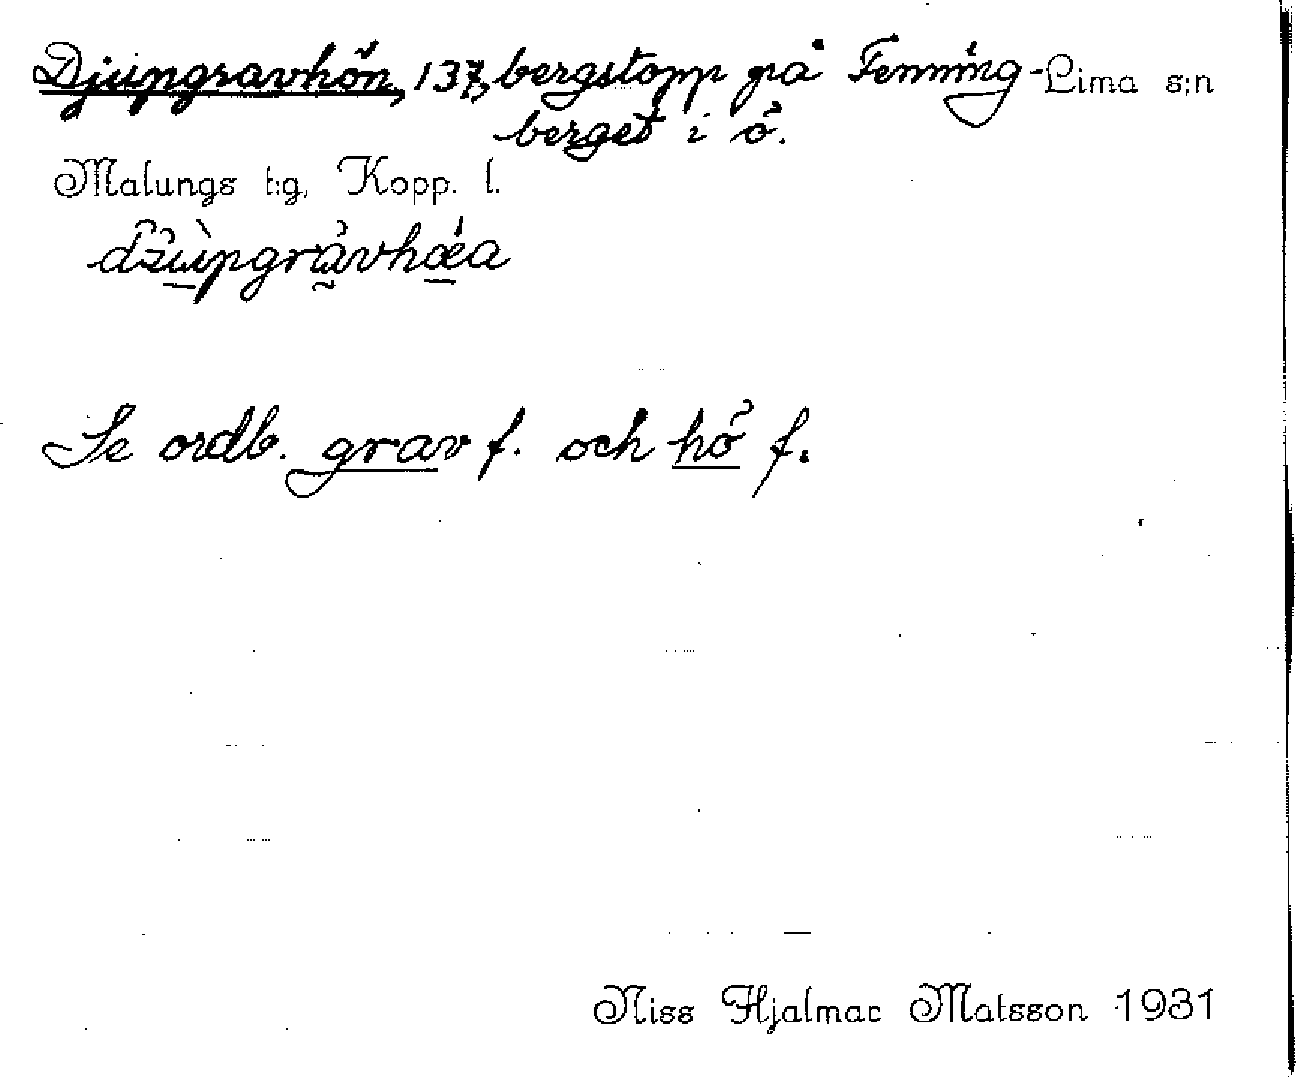 Djupgravhön, 137, bergstopp på Fenning- Lima s:n
berget i ö.
Malungs t:g, Kopp. l.
Se ordb. grav f. och hö f.
Niss Hjalmar Matsson 1931